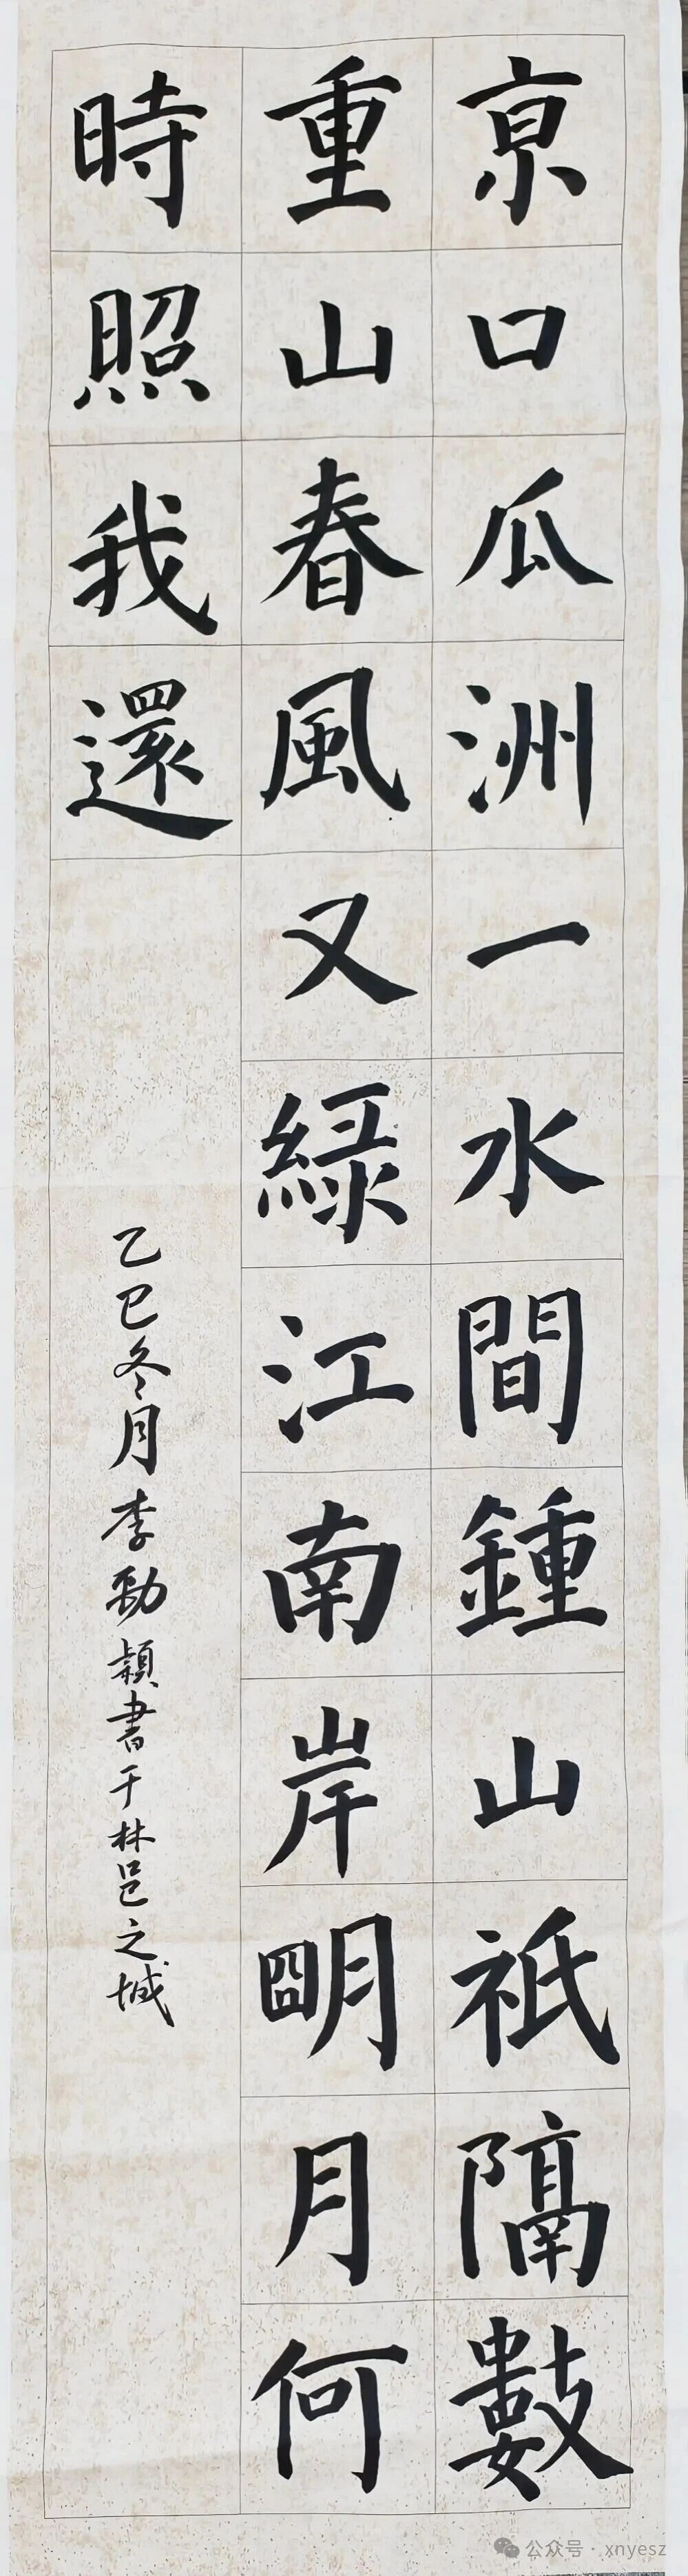 京口瓜洲一水間鍾山祇隔數
重山春風又綠江南岸明月何
時照我還
乙巳冬月李勁穎書于林邑之城
公众号 · xnyesz